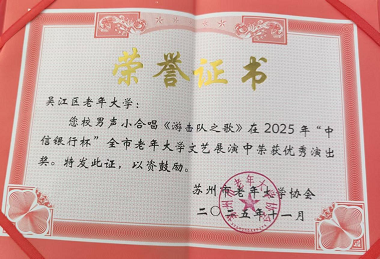 荣誉证书
吴江区老年大学：
您校男声小合唱《游击队之歌》在2025年“中
信银行杯”全市老年大学文艺展演中荣获优秀演出
奖。特发此证，以资鼓励。
苏州市老年大学协会
二〇二五年十一月